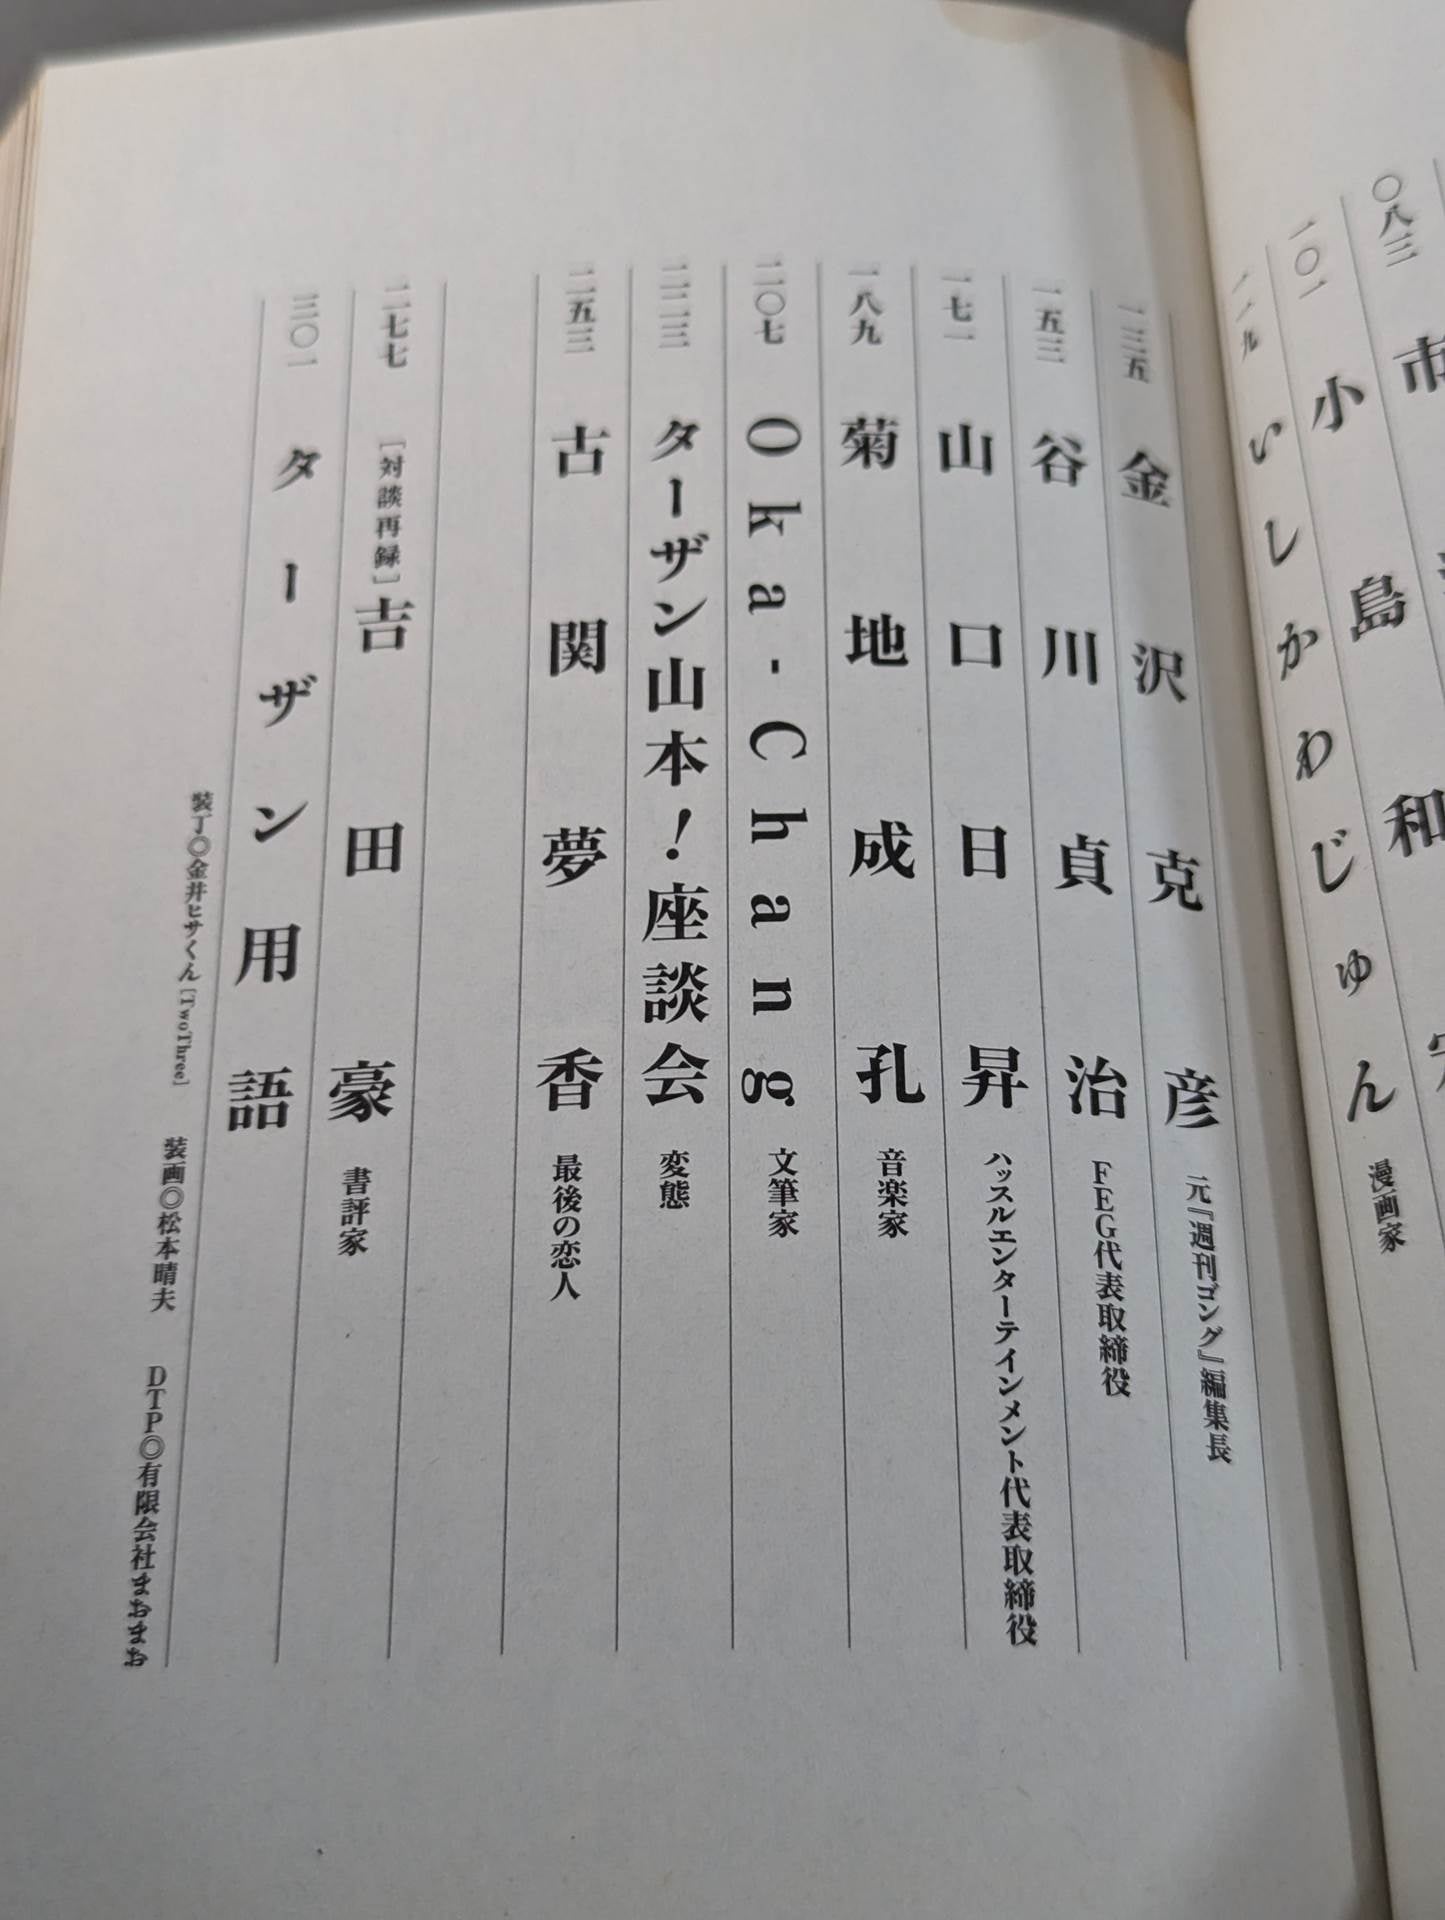 〇八三 市 和
一〇一 小島
一一九 いしかわじゅん 漫画家
一三五 金沢克彦 元『週刊ゴング』編集長
一五三 谷川貞治 FEG代表取締役
一七一 山口日昇 ハッスルエンターテインメント代表取締役
一八九 菊地成孔 音楽家
二〇七 Oka-Chang 文筆家
二二三 ターザン山本!座談会 変態
二五三 古関夢香 最後の恋人
二七七 [対談再録]吉田豪 書評家
三〇一 ターザン用語
装丁◎金井ヒサくん[TwoThree] 装画◎松本晴夫 DTP◎有限会社まおまお